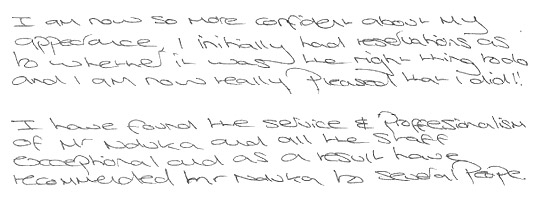 I am now so more confident about my
appearance, I initially had reservations as
to whether it was the right thing to do
and I am now really pleased that I did!!
I have found the service & Proffesionalism
of Mr Nduka and all the staff
exceptional and as a result have
recommended Mr Nduka to several people.